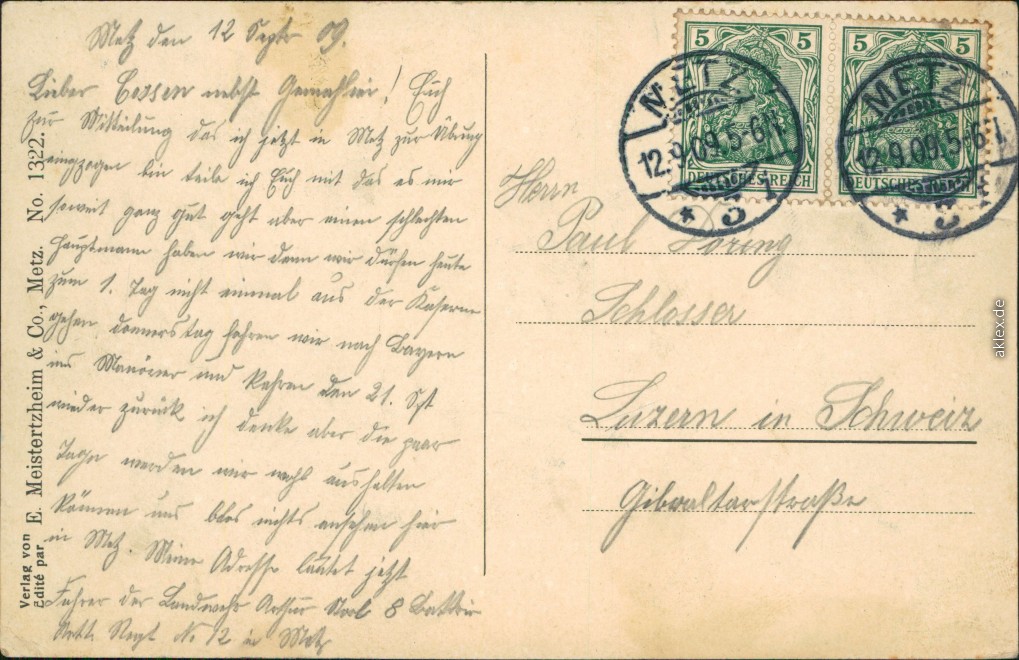 Metz den 12 Septr 09.
Lieber Cossen nebst Gemahlin! Euch
zur Mitteilung das ich jetzt in Metz zur Übung
eingezogen bin teile ich Euch mit das es mir
soweit ganz gut geht aber einen schlechten
Hauptmann haben wir denn wir dürfen heute
zum 1. Tag nicht einmal aus der Kaserne
gehen, donnerstag fahren wir nach Bayern
ins Manöver und kehren den 21. Spt
wieder zurück ich denke aber die paar
Tage werden wir wohl aushalten
können uns blos nichts ansehen hier
in Metz. Meine Adresse lautet jetzt
Fahrer der Landwehr Arthur 8 Battrie
Artl. Regt No 12 in Metz
Verlag von
Édité par
E. Meistertzheim & Co., Metz. No. 1322.
5 5
DEUTSCHES REICH
5 5
DEUTSCHES REICH
METZ
12.9.09.5-6N.
* 3
METZ
12.9.09.5-6N.
* 3
Herrn
Paul Höring
Schlosser
Luzern in Schweiz
Gibraltarstraße
aklex.de